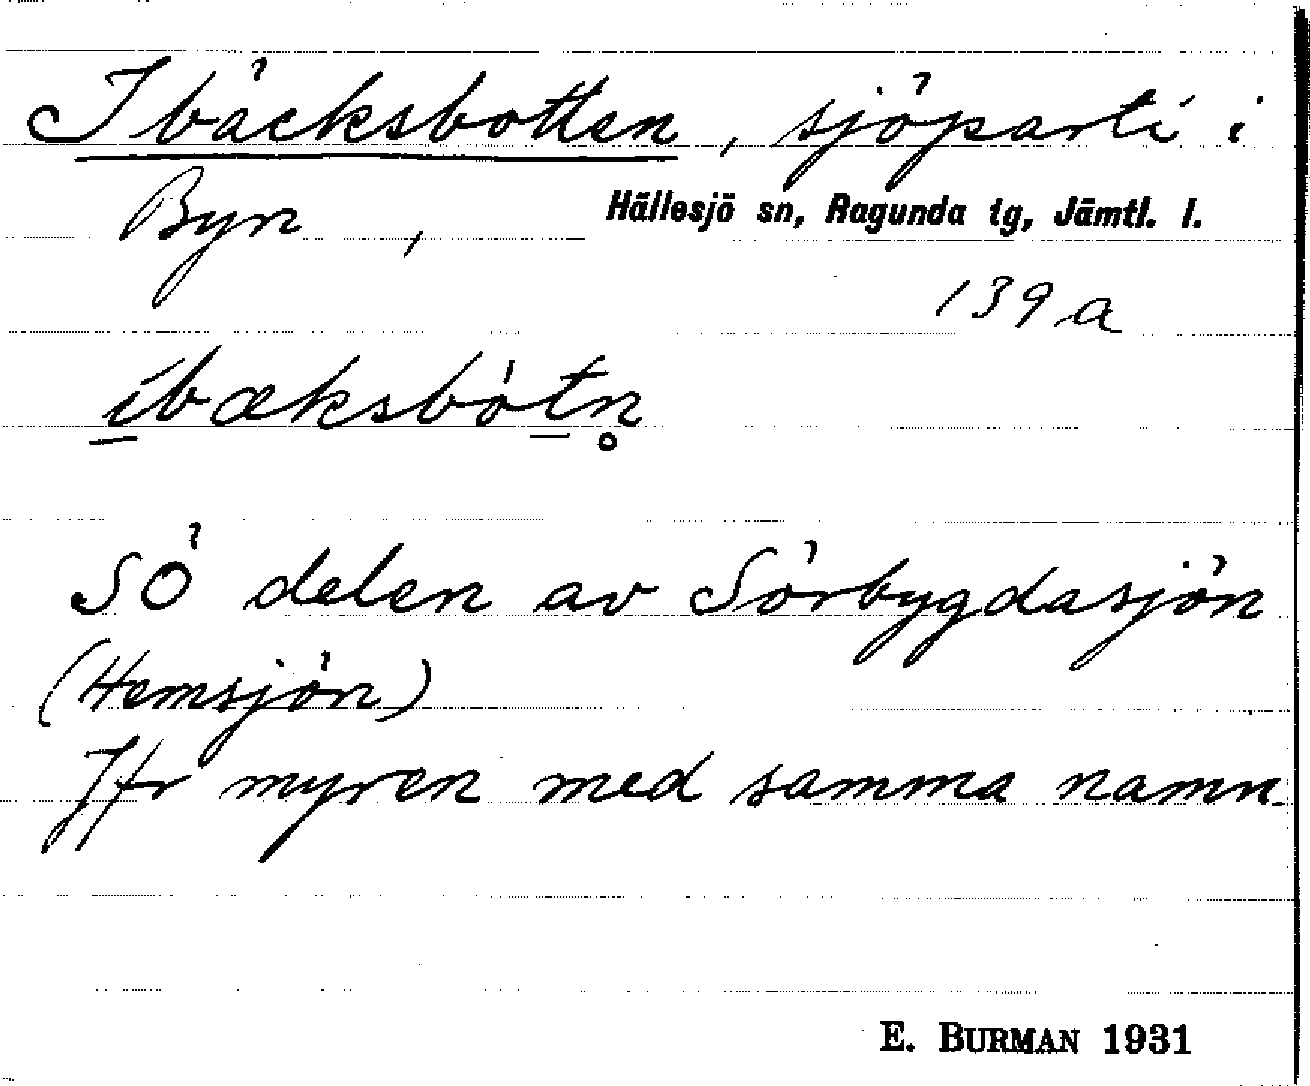 Ibäcksbotten, sjöparti i
Byn, Hällesjö sn, Ragunda tg, Jämtl. l.
139 a
ibæksbòtn̥
SÖ delen av Sörbygdasjön
(Hemsjön)
Jfr myren med samma namn
E. BURMAN 1931